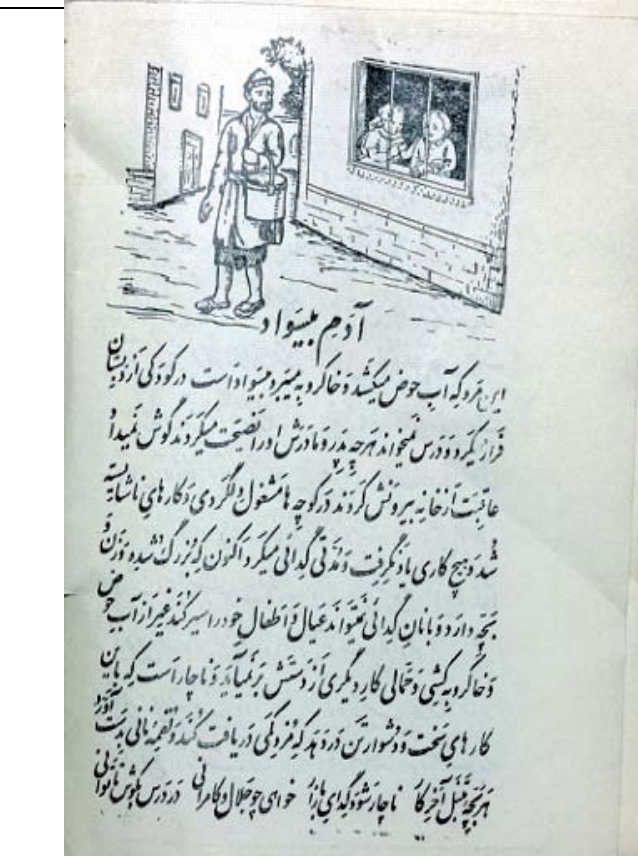 آدم بیسواد
این مرد که آب حوض میکشد و خاکروبه میبرد بیسواد است در کودکی از دبستان
فرار میکرد و درس نمیخواند هرچه پدر و مادرش او را نصیحت میکردند گوش نمیداد
عاقبت از خانه بیرونش کردند در کوچه ها مشغول ولگردی و کارهای ناشایسته
شد و هیچ کاری یاد نگرفت و مدتی گدائی میکرد و اکنون که بزرگ شده و زن و
بچه دارد و با نان گدائی نمیتواند عیال و اطفال خود را سیر کند غیر از آب حوض
و خاکروبه کشی و حمالی کار دیگری از دستش برنمیآید و ناچار است که باین
کارهای سخت و دشوار تن در دهد که مزد کمی دریافت کند و لقمه نانی بدست آورد
هر بچه تنبل آخر کار ناچار شود گدای بازار خواهی چو جلال و کامرانی در درس بکوش تا توانی